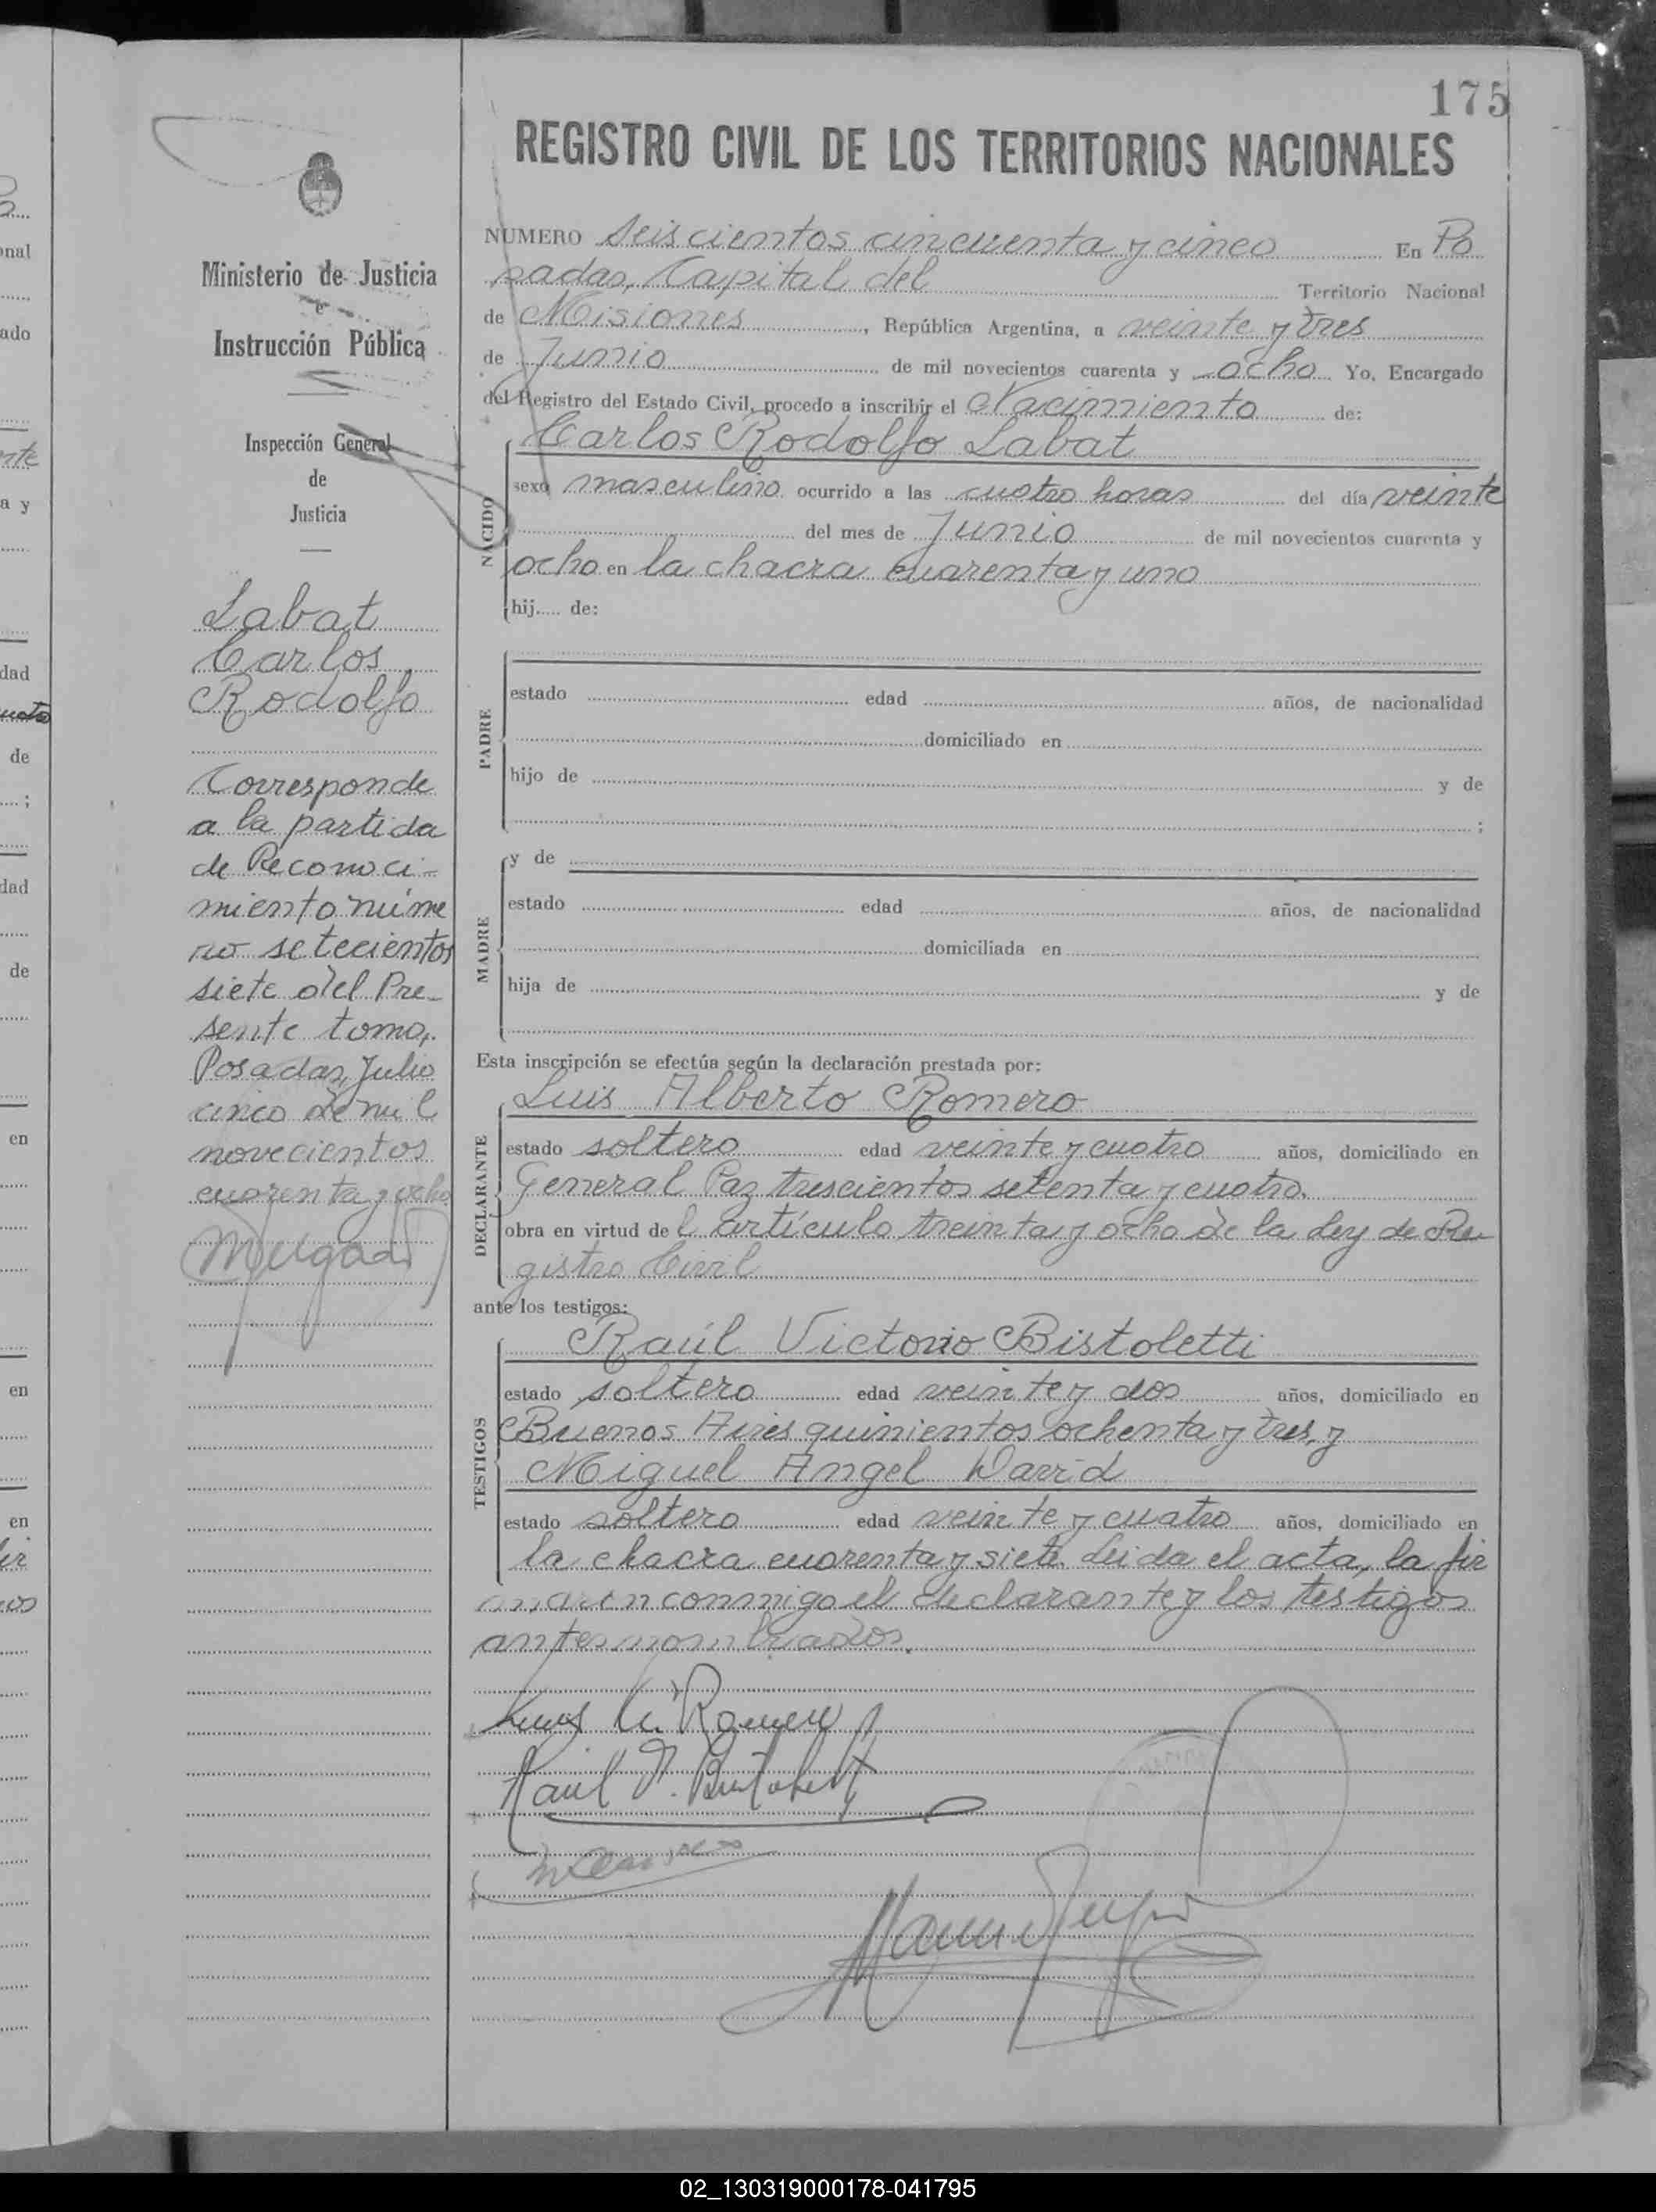 175
REGISTRO CIVIL DE LOS TERRITORIOS NACIONALES
Ministerio de Justicia
e
Instrucción Pública
Inspección General
de
Justicia
Labat
Carlos
Rodolfo
Corresponde
a la partida
de Reconoci-
miento núme
ro setecientos
siete del Pre-
sente tomo.
Posadas, Julio
cinco de mil
novecientos
cuarenta y ocho
NUMERO Seiscientos cincuenta y cinco En Po
sadas, Capital del Territorio Nacional
de Misiones, República Argentina, a veinte y tres
de Junio de mil novecientos cuarenta y ocho Yo, Encargado
del Registro del Estado Civil, procedo a inscribir el Nacimiento de:
NACIDO
Carlos Rodolfo Labat
sexo masculino ocurrido a las cuatro horas del día veinte
del mes de Junio de mil novecientos cuarenta y
ocho en la chacra cuarenta y uno
hij..... de:
PADRE
estado edad años, de nacionalidad
domiciliado en
hijo de y de
;
MADRE
y de
estado edad años, de nacionalidad
domiciliada en
hija de y de
Esta inscripción se efectúa según la declaración prestada por:
DECLARANTE
Luis Alberto Romero
estado soltero edad veinte y cuatro años, domiciliado en
General Paz trescientos setenta y cuatro.
obra en virtud del artículo treinta y ocho de la Ley de Re
gistro Civil
ante los testigos:
TESTIGOS
Raúl Victorio Bistoletti
estado soltero edad veinte y dos años, domiciliado en
Buenos Aires quinientos ochenta y tres, y
Miguel Angel David
estado soltero edad veinte y cuatro años, domiciliado en
la chacra cuarenta y siete. Leida el acta, la fir
maron conmigo el declarante y los testigos
antes nombrados.
Luis A. Romero
Raúl V. Bistoletti
02_130319000178-041795